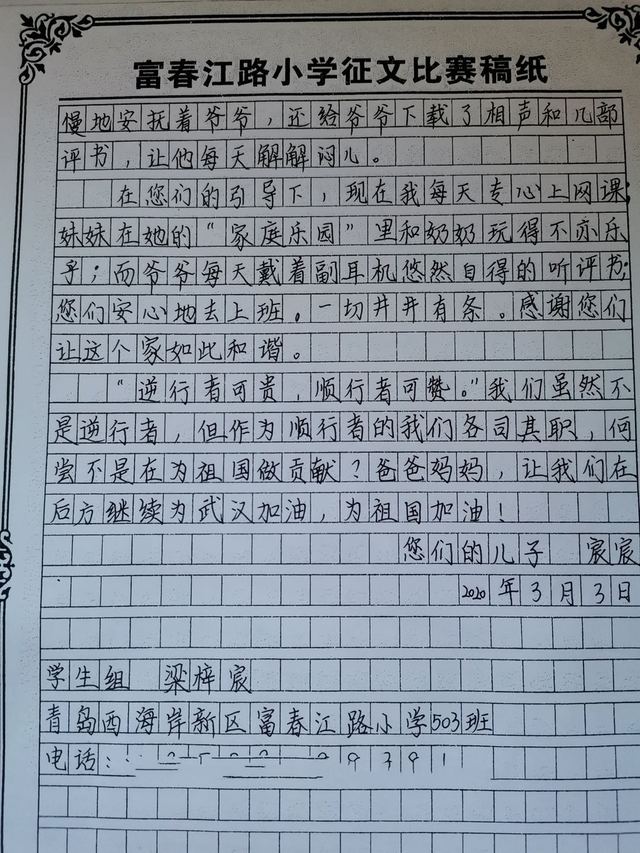 富春江路小学征文比赛稿纸
慢地安抚着爷爷，还给爷爷下载了相声和几部
评书，让他每天解解闷儿。
在您们的引导下，现在我每天专心上网课；
妹妹在她的“家庭乐园”里和奶奶玩得不亦乐
乎；而爷爷每天戴着副耳机悠然自得的听评书；
您们安心地去上班。一切井井有条。感谢您们
让这个家如此和谐。
“逆行者可贵，顺行者可赞。”我们虽然不
是逆行者，但作为顺行者的我们各司其职，何
尝不是在为祖国做贡献？爸爸妈妈，让我们在
后方继续为武汉加油，为祖国加油！
您们的儿子 宸宸
2020年3月3日
学生组 梁梓宸
青岛西海岸新区富春江路小学503班
电话：